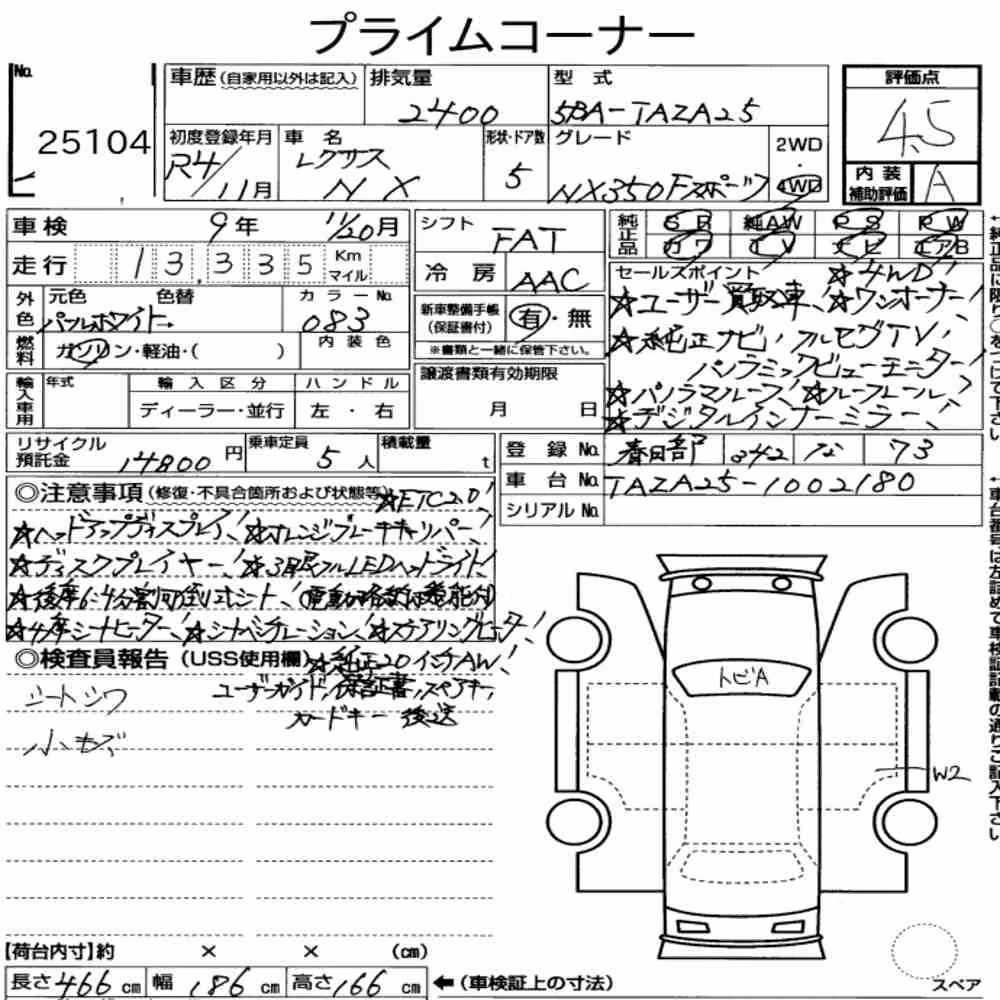 プライムコーナー
No.
25104
車歴 (自家用以外は記入)
排気量
2400
型式
5BA-TAZA25
評価点
4.5
初度登録年月
R4/11月
車名
レクサス
NX
形状・ドア数
5
グレード
NX350Fスポーツ
2WD
・
4WD
内装
補助評価
A
車検 9年 11/20月
走行 13,335 Km
マイル
シフト
FAT
冷房 AAC
純正品 SR 純AW PS PW
カワ TV ナビ エアB
セールスポイント ☆4WD!
☆ユーザー買取車、☆ワンオーナー!
☆純正ナビ、フルセグTV、
パノラミックビューモニター!
☆パノラマルーフ! ☆ルーフレール!
☆デジタルインナーミラー!
外色
元色 色替
パールホワイト→
カラーNo.
083
燃料
ガソリン・軽油・( )
内装色
新車整備手帳
(保証書付)
有・無
※書類と一緒に保管下さい。
輸入車用
年式
輸入区分
ディーラー・並行
ハンドル
左・右
譲渡書類有効期限
月 日
リサイクル
預託金 14800円
乗車定員
5人
積載量
t
登録No. 春日部 342 な 73
車台No. TAZA25-1002180
シリアルNo.
◎注意事項 (修復・不具合箇所および状態等) ☆ETC2.0!
☆ヘッドアップディスプレイ! ☆オレンジブレーキキャリパー!
☆ディスクプレイヤー! ☆3眼フルLEDヘッドライト!
☆後席6:4分割可倒式シート!
☆4席シートヒーター! ☆シートベンチレーション! ☆ステアリングヒーター!
◎検査員報告 (USS使用欄) ☆純正20インチAW!
シートシワ
ユーザーガイド、保証書、スペアキー、
カードキー 後送
小キズ
トビA
W2
【荷台内寸】約 × × (cm)
長さ466cm 幅186cm 高さ166cm
←(車検証上の寸法)
スペア
←純正品に限り○をつけて下さい
←車台番号は左詰めで車検証記載の通りご記入下さい